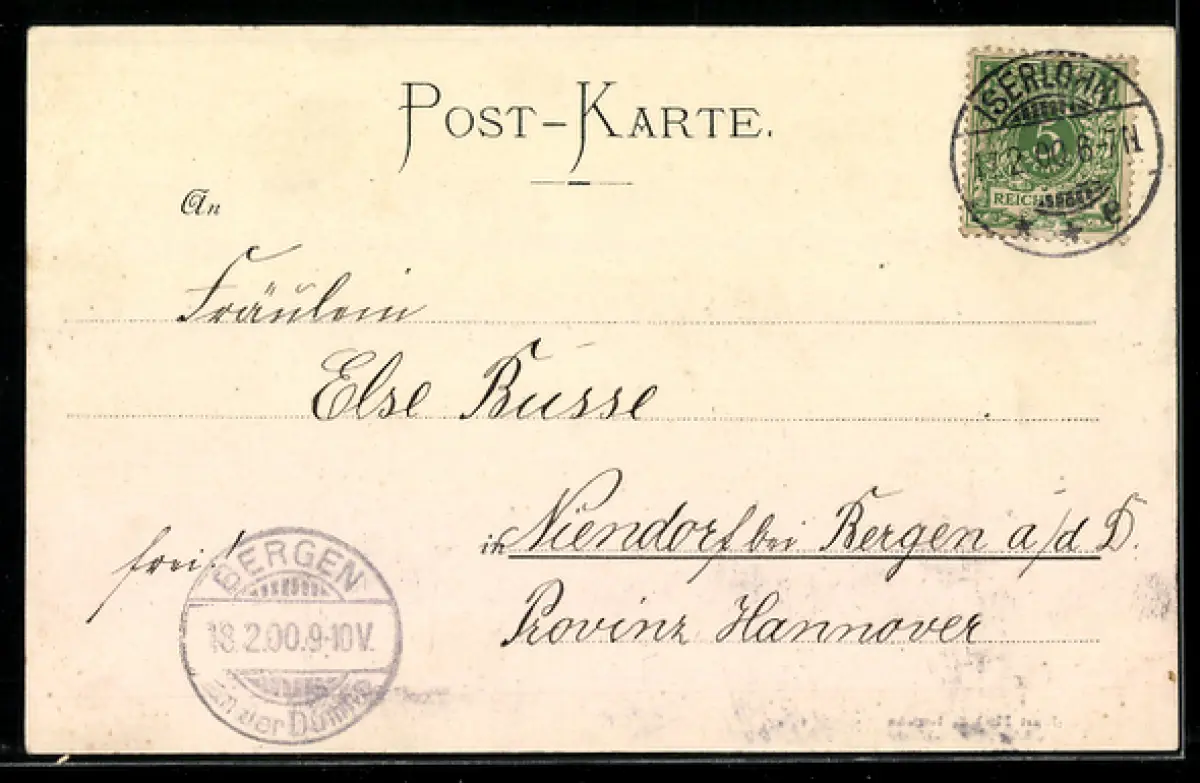 POST-KARTE.
ISERLOHN
17.2.00.6-7N
5
REICHS
* * e
An
Fräulein
Else Busse
in Niendorf bei Bergen a/d D.
Provinz Hannover
frei!
BERGEN
18.2.00.9-10V.
an der Dumme